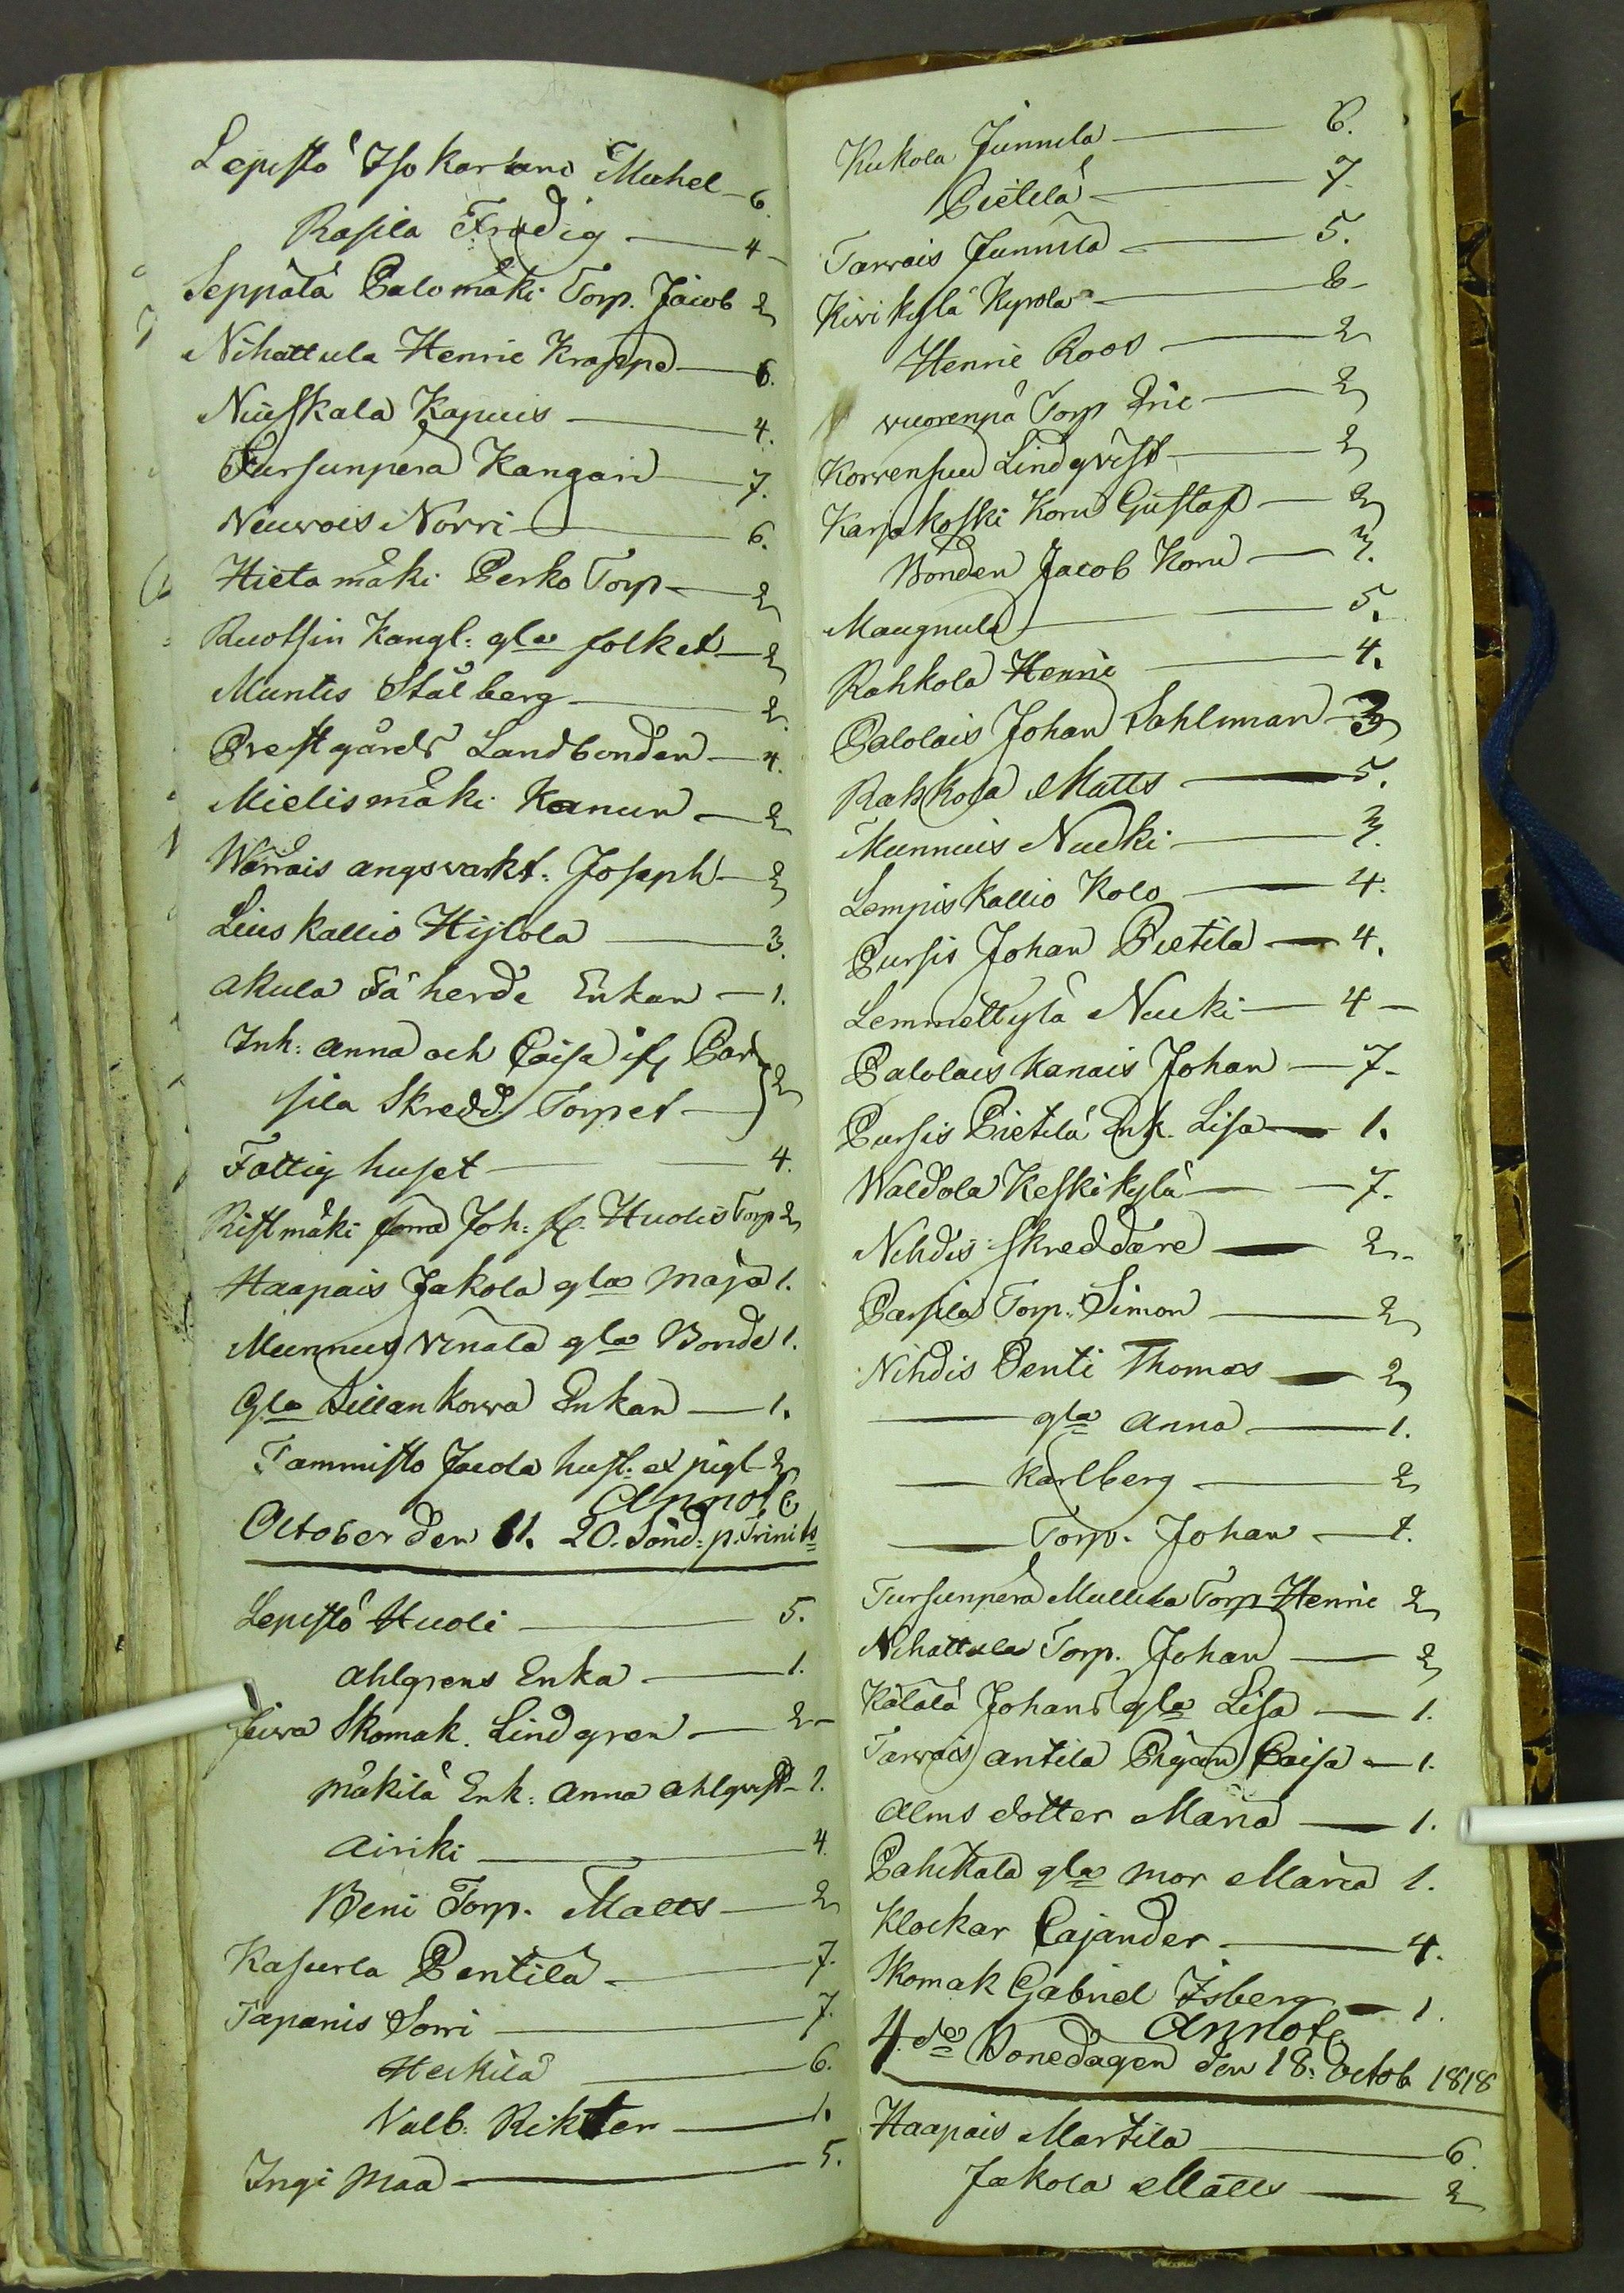 Lepistö Iso kartano Michel - 6.
Rasila Fredig - 4 -
Seppälä Palomäki Torp. Jacob 2
Nihattula Henric Krapp - 6.
Niuskala Kapuis - 4.
Tursunperä Kangari - 7.
Neuvois Norri - 6.
Hietamäki Perko Torp - 2
Ruotsin Kangl: gla folket - 2
Muntis Stålberg - 2.
Prestgårds Landbonden - 4.
Mielismäki Kanun - 2
Warrais angsvarkt. Joseph - 2
Liuskallio Hijtola - 3.
Akula Fäherde Enkan - 1.
Inh: Anna och Caisa Par } 2
sila Skredd. Torpet
Fattighuset - 4.
Ristmäki Joh: Huolis Torp 2
Haapais Jakola gla Maja 1.
Munnus Vinala gla Bonde 1.
Gla Sillankorva Enkan - 1.
Tammisto Jacola hust. et pigl - 2
Annote
October den 11. 20. Sönd: p. Trinits
Lepistö Huoli - 5.
Ahlgrens Enka - 1.
Skomak. Lindgren - 2 -
Mäkilä Enk: Anna Ahlqvist - 1.
Airiki - 4.
Beni Torp. Matts - 2
Kasurla Pentilä - 7.
Tapanis Sorri - 7.
Heikilä - 6.
Valb. Rikter - 1.
Ingi Maa - 5.
Kukola Junnila - 6.
Pietilä - 7.
Tarvais Junnila - 5.
Kivikylä Kyrola - 6 -
Henric Roos - 2
Vuorenpä Torp Eric - 2
Korvensuu Lindqvist - 2
Karjakoski Koru Gustaf - 2
Bonden Jacob Koru - 3.
Maugnula - 5.
Rahkola Henric - 4.
Palolais Johan Sahlman - 3
Rahkola Matts - 5.
Munnuis Nucki - 3.
Lempiskallio Kolo - 4.
Pursis Johan Pietila - 4.
Lemmettylä Nucki - 4 -
Palolais Kanais Johan - 7 -
Pursis Pietilä Enk. Lisa - 1.
Waldola Keskikylä - 7.
Nihdis Skreddare - 2 -
Parsila Torp. Simon - 2
Nihdis Penti Thomas - 2
- gla Anna - 1.
- Karlberg - 2
- Torp. Johan - 1.
Tursunpera Mullila Torp Henric 2
Nihattula Torp. Johan - 2
Kätälä Johans gla Lisa - 1.
Tarvais Antila Pigan Caisa - 1.
Alms dotter Maria - 1.
Pahikala gla mor Maria 1.
Klockar Cajander - 4.
Skomak Gabriel Isberg - 1.
Annote
4. de Bönedagen den 18. Octob 1818
Haapais Martila - 6.
Jakola Matts - 2